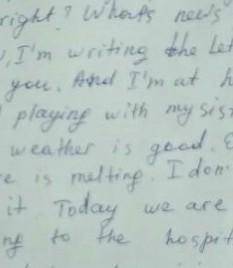 right? What's news
, I'm writing the Let
you. And I'm at h
playing with my sis
weather is good.
e is melting. I don
it Today we are
ng to the hospit